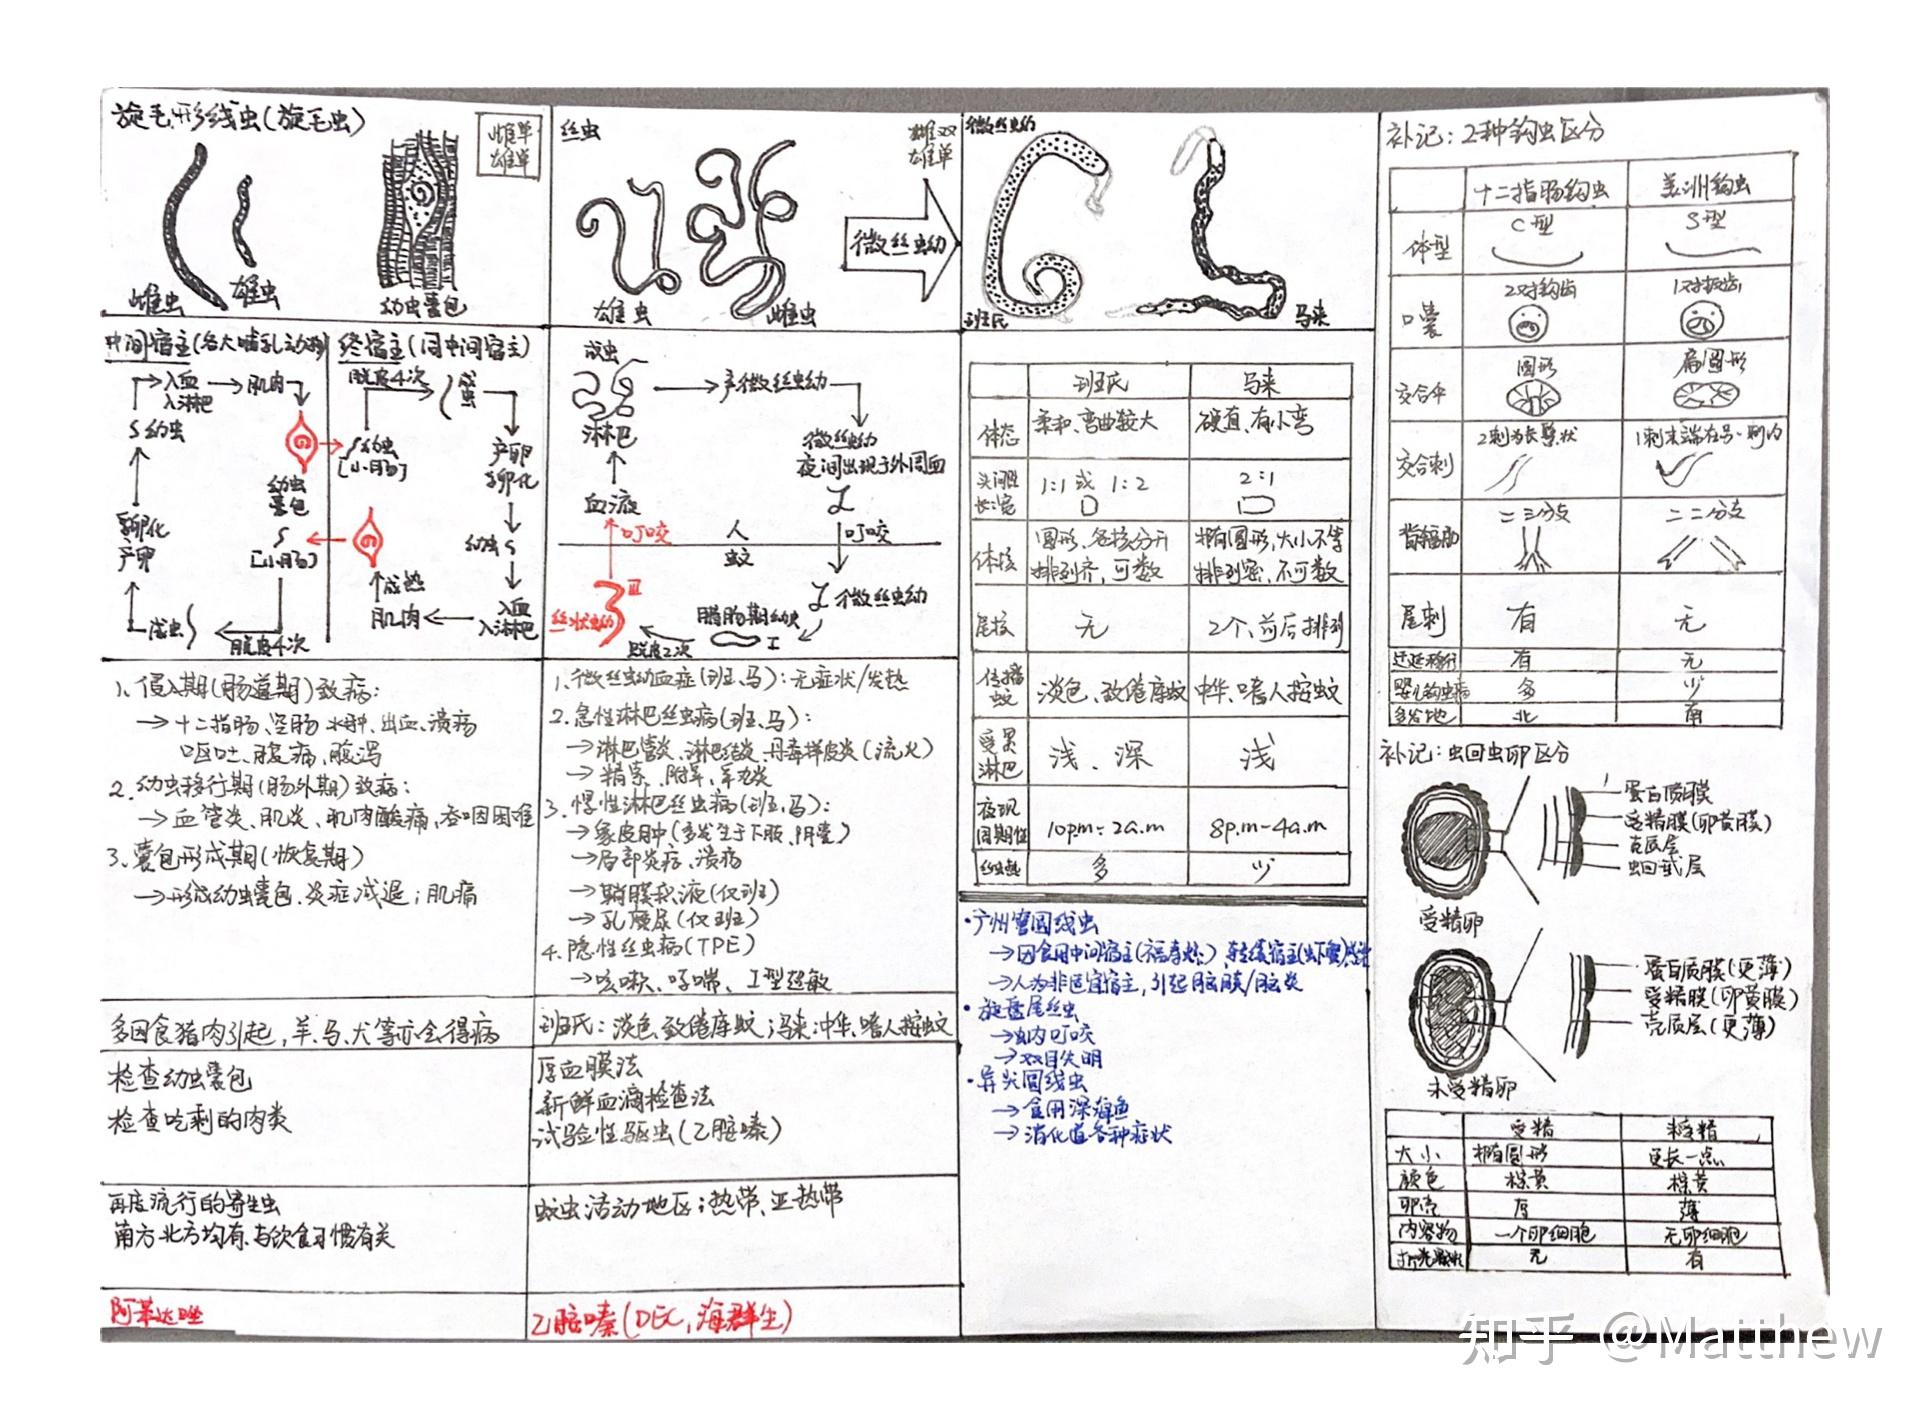 旋毛形线虫(旋毛虫)
雌单
雄单
雌虫
雄虫
幼虫囊包
中间宿主(各大哺乳动物)
入血
入淋巴
肌肉
S幼虫
孵化
产卵
成虫
脱皮4次
幼虫
囊包
S
[小肠]
终宿主(同中间宿主)
脱皮4次
成虫
幼虫
[小肠]
产卵
孵化
幼虫S
入血
入淋巴
肌肉
成熟
1. 侵入期(肠道期)致病:
→十二指肠、空肠 水肿、出血、溃疡
呕吐、腹痛、腹泻
2. 幼虫移行期(肠外期)致病:
→血管炎、肌炎、肌肉酸痛、吞咽困难
3. 囊包形成期(恢复期)
→形成幼虫囊包、炎症减退;肌痛
多因食猪肉引起,羊、马、犬等亦会得病
检查幼虫囊包
检查吃剩的肉类
再度流行的寄生虫
南方北方均有、与饮食习惯有关
阿苯达唑
丝虫
雌双
雄单
雄虫
雌虫
微丝虫幼
成虫
淋巴
血液
产微丝虫幼
微丝虫幼
夜间出现于外周血
叮咬
人
蚊
叮咬
微丝虫幼
腊肠期幼虫
I
脱皮2次
丝状虫幼
III
1. 微丝虫幼血症(班、马):无症状/发热
2. 急性淋巴丝虫病(班、马):
→淋巴管炎、淋巴结炎、丹毒样皮炎(流火)
→精索、附睾、睾丸炎
3. 慢性淋巴丝虫病(班、马):
→象皮肿(多发生于下肢、阴囊)
→局部炎症、溃疡
→鞘膜积液(仅班)
→乳糜尿(仅班)
4. 隐性丝虫病(TPE)
→咳嗽、哮喘、I型超敏
班氏:淡色、致倦库蚊;马来:中华、嗜人按蚊
厚血膜法
新鲜血滴检查法
试验性驱虫(乙胺嗪)
蚊虫活动地区:热带、亚热带
乙胺嗪(DEC,海群生)
微丝虫幼
班氏
马来
班氏 马来
体态 柔和、弯曲较大 硬直、有小弯
头间隙
长:宽 1:1或1:2 2:1
体核 圆形、各核分开
排列齐,可数 椭圆形,大小不等
排列密、不可数
尾核 无 2个、前后排列
传播
蚊 淡色、致倦库蚊 中华、嗜人按蚊
受累
淋巴 浅、深 浅
夜现
周期性 10p.m-2a.m 8p.m-4a.m
多 少
·广州管圆线虫
→因食用中间宿主(福寿螺)、转续宿主(虾蟹)感染
→人为非适宜宿主,引起脑膜/脑炎
·旋盘尾丝虫
→蚋叮咬
→双目失明
·异尖圆线虫
→食用深海鱼
→消化道各种症状
补记:2种钩虫区分
十二指肠钩虫 美洲钩虫
体型 C型 S型
口囊 2对钩齿 1对板齿
交合伞 圆形 扁圆形
交合刺 2刺为长鬃状 1刺末端在另一刺内
背辐肋 二三分支 二二分支
尾刺 有 无
迁延移行 有 无
婴儿钩虫病 多 少
多发地 北 南
补记:虫回虫卵区分
蛋白质膜
受精膜(卵黄膜)
壳质层
虫回甙层
受精卵
蛋白质膜(更薄)
受精膜(卵黄膜)
壳质层(更薄)
未受精卵
受精 未受精
大小 椭圆形 更长一点
颜色 棕黄 棕黄
卵壳 厚 薄
内容物 一个卵细胞 无卵细胞
无 有
知乎 @Matthew